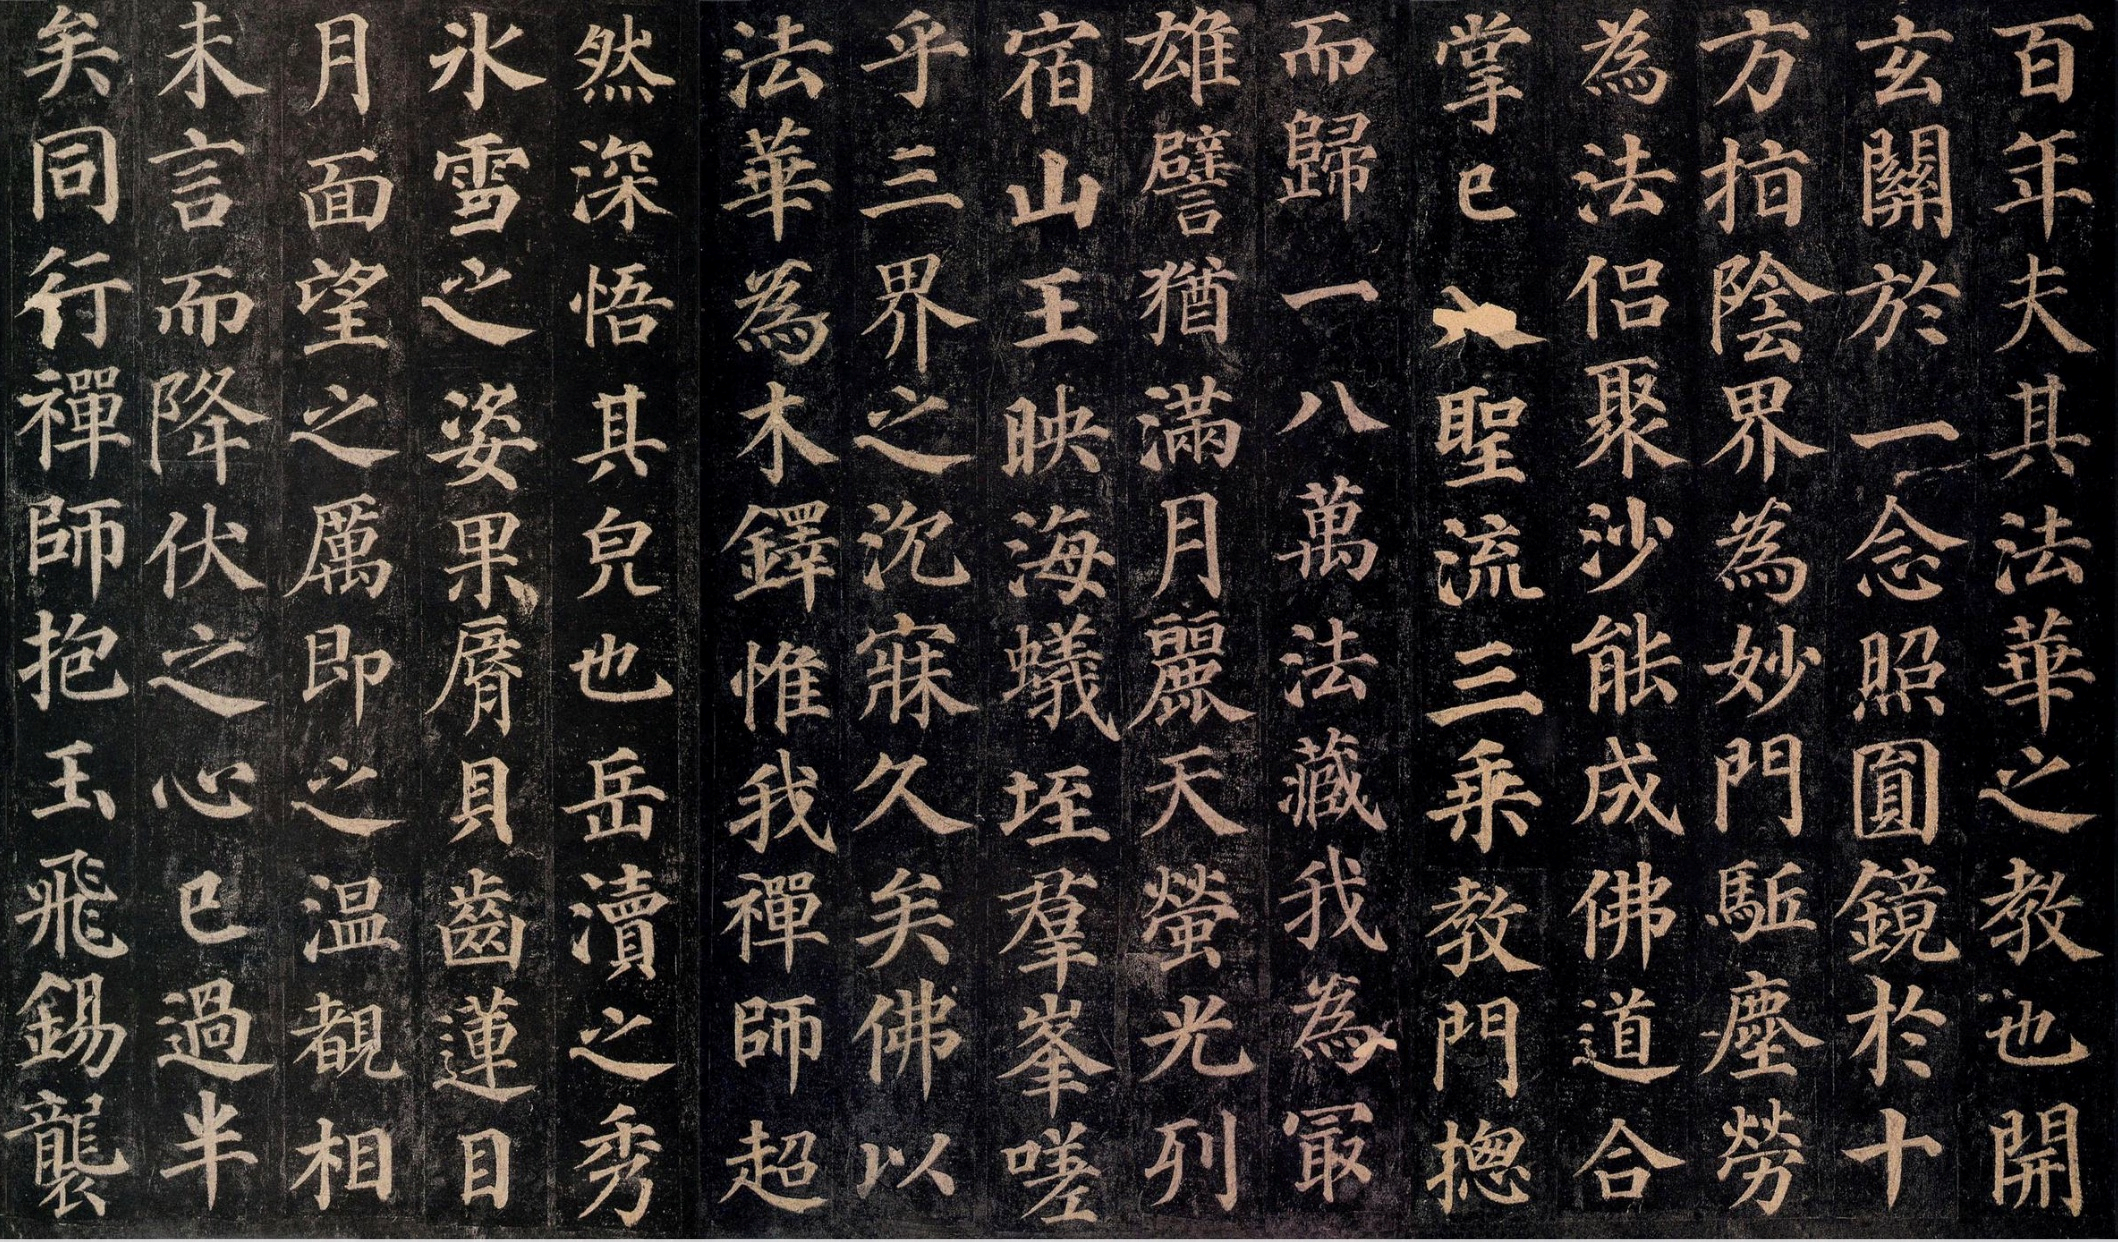 百年夫其法華之教也開
玄關於一念照圓鏡於十
方指陰界為妙門駈塵勞
為法侣聚沙能成佛道合
掌已入聖流三乗教門揔
而歸一八萬法藏我為冣
雄譬猶滿月麗天螢光列
宿山王映海蟻垤羣峯嗟
乎三界之沉寐久矣佛以
法華為木鐸惟我禪師超
然深悟其皃也岳瀆之秀
氷雪之姿果脣貝齒蓮目
月面望之厲即之温覩相
未言而降伏之心已過半
矣同行禪師抱玉飛錫襲